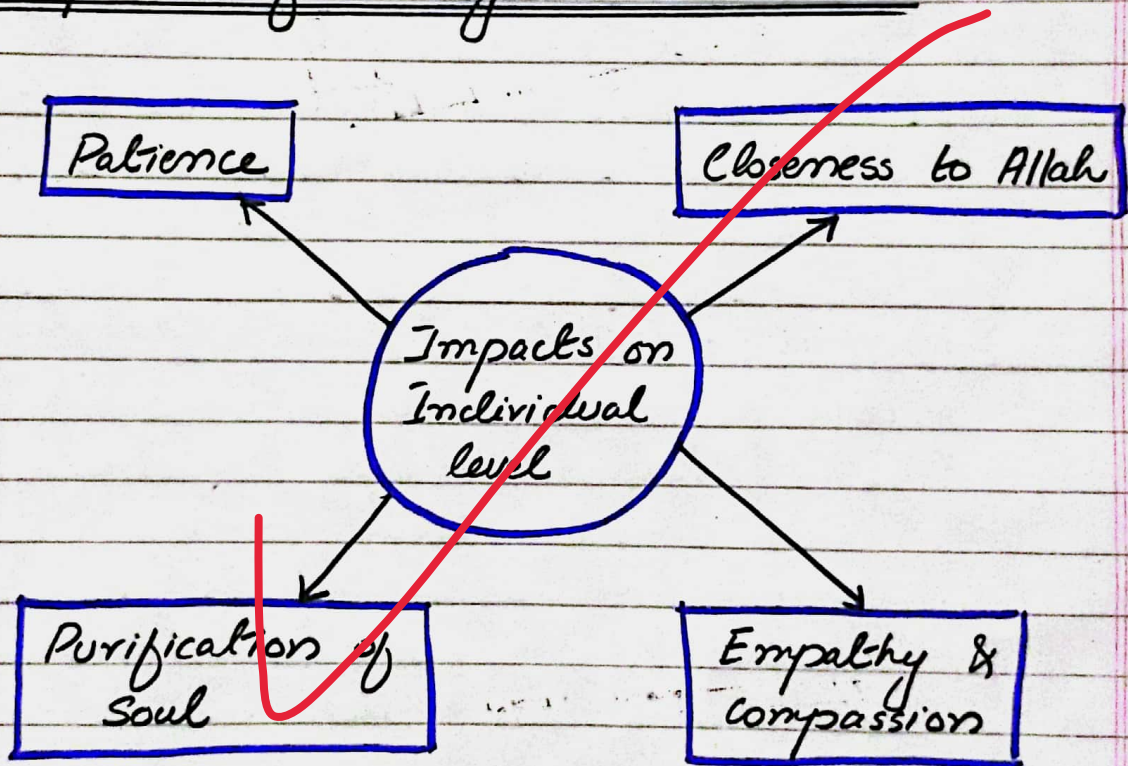 Patience
Closeness to Allah
Impacts on
Individual
level
Purification of
Soul
Empathy &
Compassion